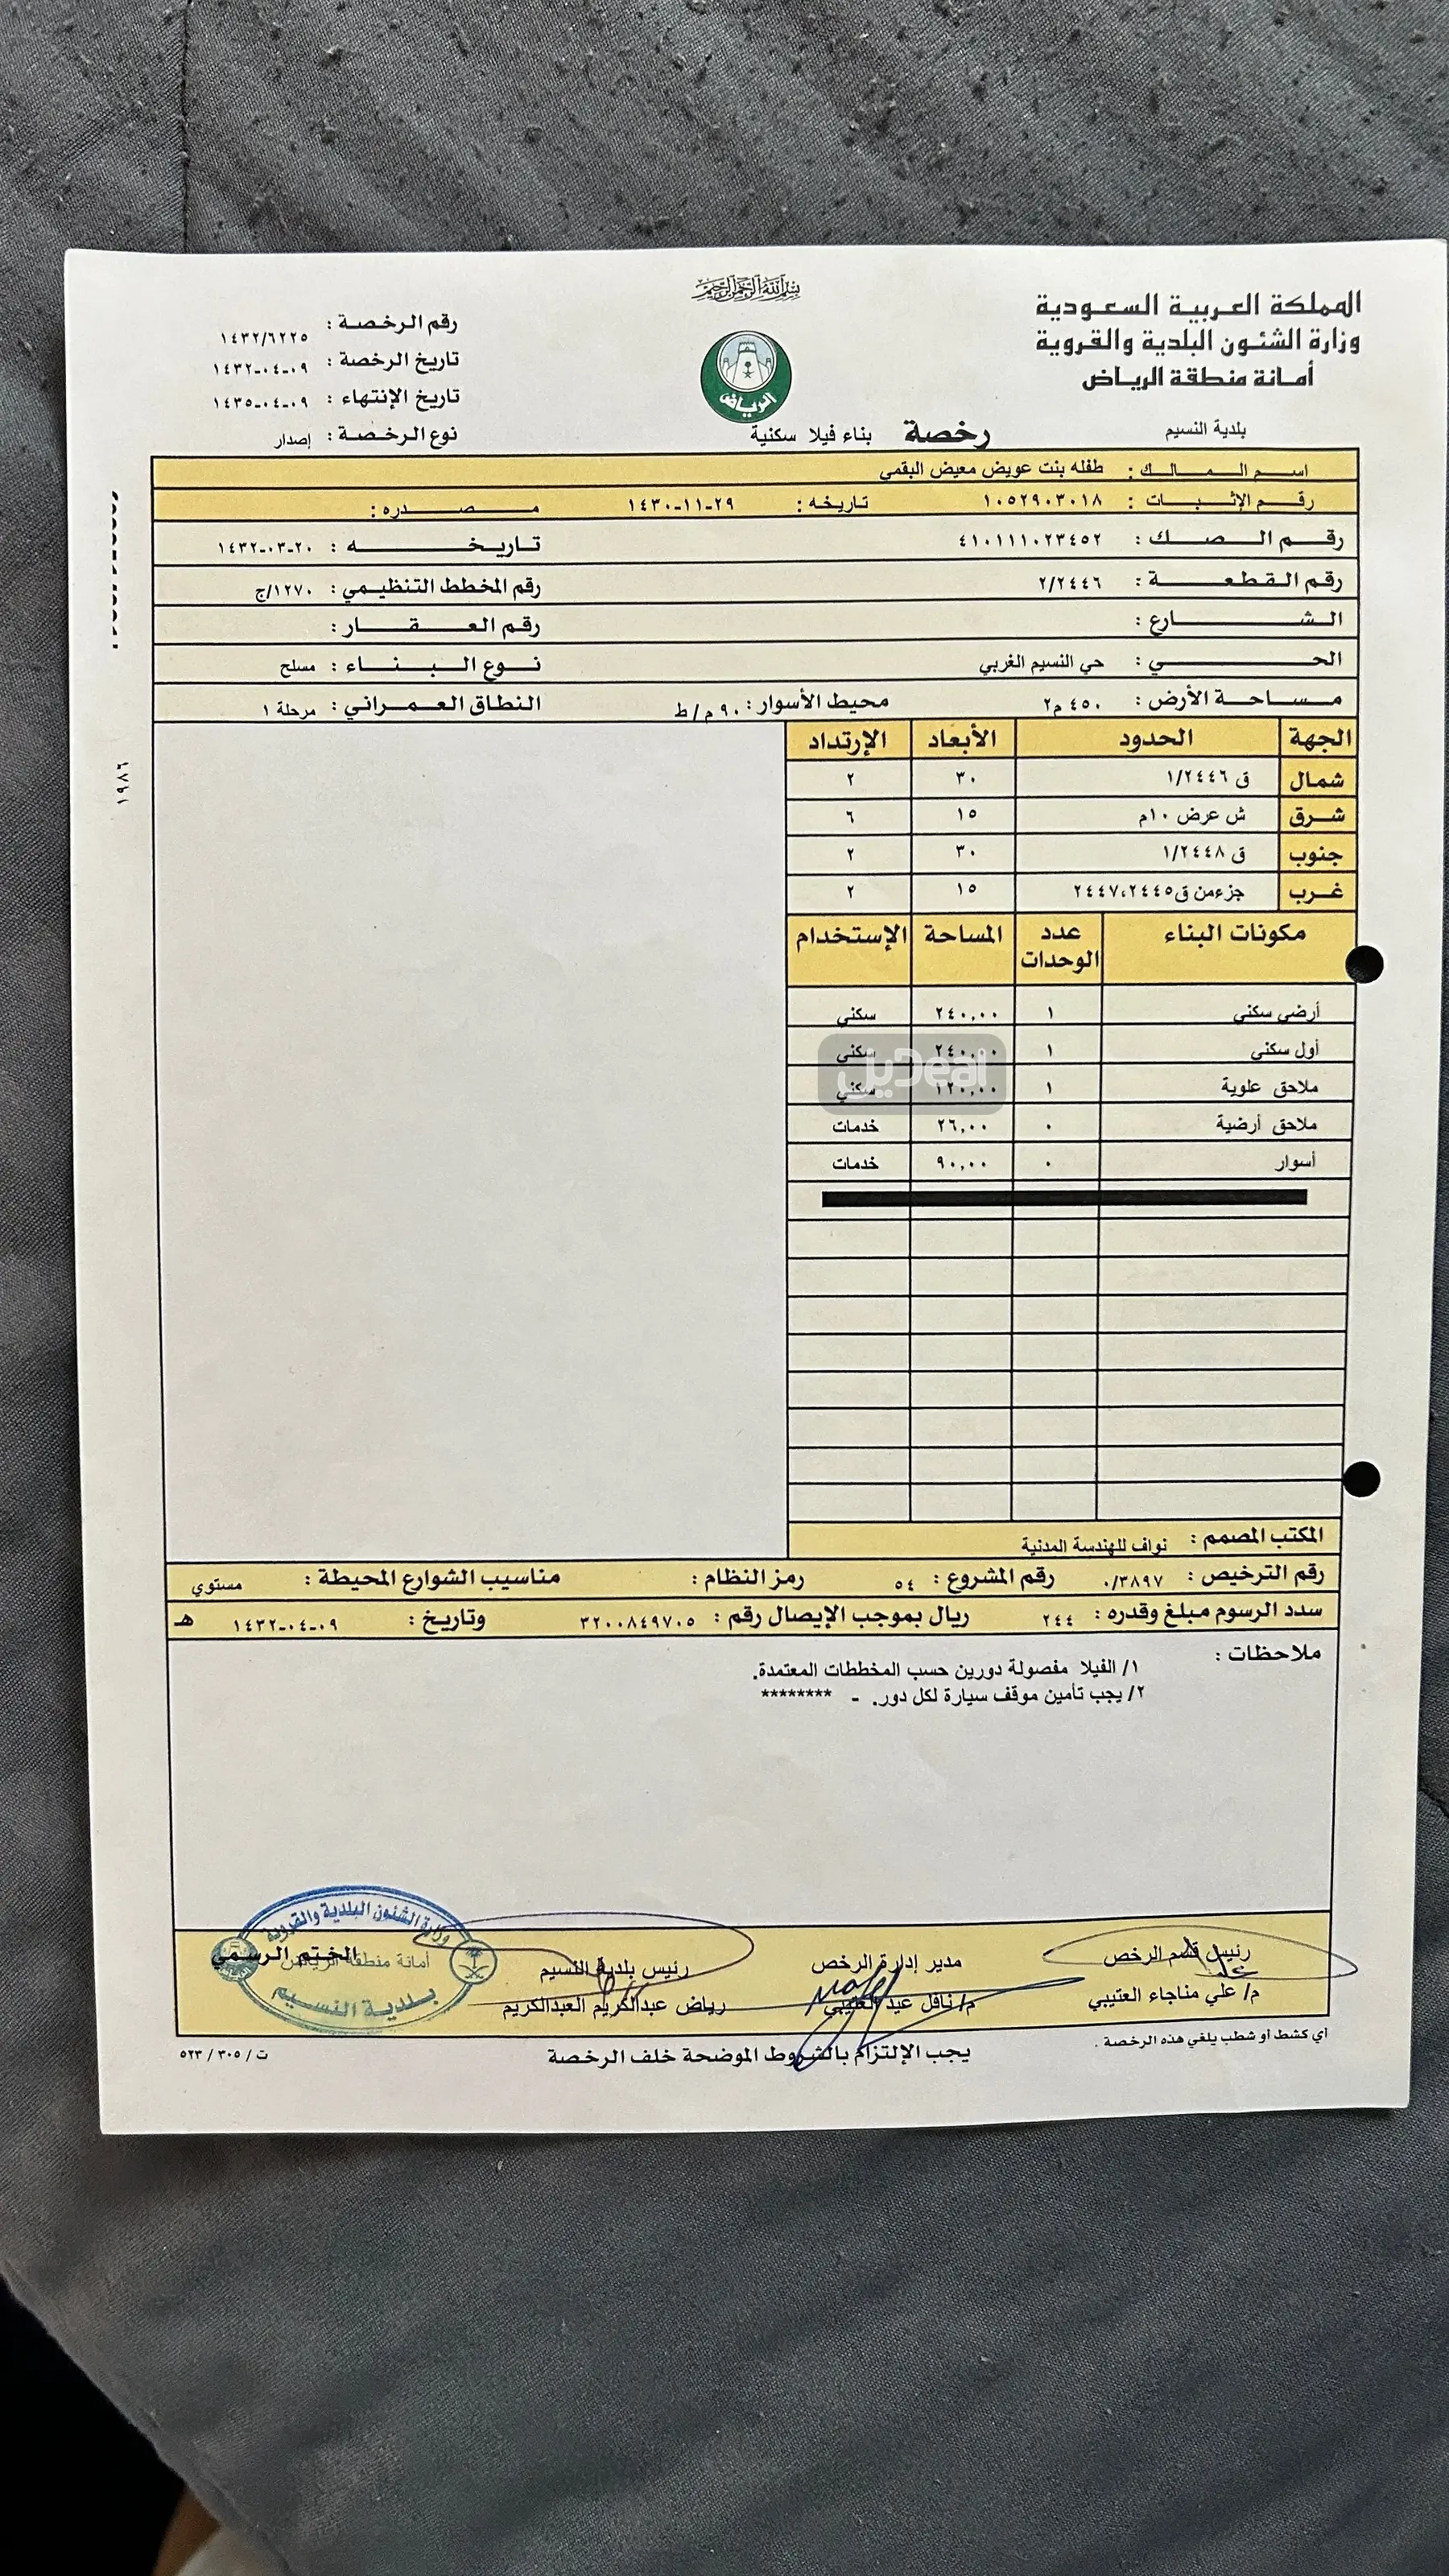 بسم الله الرحمن الرحيم
المملكة العربية السعودية
وزارة الشئون البلدية والقروية
أمانة منطقة الرياض
بلدية النسيم
الرياض
رخصة بناء فيلا سكنية
رقم الرخصة : ١٤٣٢/٦٢٢٥
تاريخ الرخصة : ١٤٣٢-٠٤-٠٩
تاريخ الإنتهاء : ١٤٣٥-٠٤-٠٩
نوع الرخصة : إصدار
اسم المالك : طفله بنت عويض معيض البقمي
رقم الإثبات : ١٠٥٢٩٠٣٠١٨ تاريخه : ١٤٣٠-١١-٢٩ مصدره :
رقم الصك : ٤١٠١١١٠٢٣٤٥٢ تاريخه : ١٤٣٢-٠٣-٢٠
رقم القطعة : ٢/٢٤٤٦ رقم المخطط التنظيمي : ١٢٧٠/ج
الشارع : رقم العقار :
الحي : حي النسيم الغربي نوع البناء : مسلح
مساحة الأرض : ٤٥٠ م٢ محيط الأسوار : ٩٠ م/ط النطاق العمراني : مرحلة ١
الجهة الحدود الأبعاد الإرتداد
شمال ق ١/٢٤٤٦ ٣٠ ٢
شرق ش عرض ١٠م ١٥ ٦
جنوب ق ١/٢٤٤٨ ٣٠ ٢
غرب جزءمن ق٢٤٤٧،٢٤٤٥ ١٥ ٢
مكونات البناء عدد الوحدات المساحة الإستخدام
أرضي سكني ١ ٢٤٠,٠٠ سكني
أول سكني ١ ٢٤٠,٠٠ سكني
ملاحق علوية ١ ١٢٠,٠٠ سكني
ملاحق أرضية ٠ ٢٦,٠٠ خدمات
أسوار ٠ ٩٠,٠٠ خدمات
ديل Deal
المكتب المصمم : نواف للهندسة المدنية
رقم الترخيص : ٠/٣٨٩٧ رقم المشروع : ٥٤ رمز النظام : مناسيب الشوارع المحيطة : مستوي
سدد الرسوم مبلغ وقدره : ٢٤٤ ريال بموجب الإيصال رقم : ٣٢٠٠٨٤٩٧٠٥ وتاريخ : ١٤٣٢-٠٤-٠٩ هـ
ملاحظات :
١/ الفيلا مفصولة دورين حسب المخططات المعتمدة.
٢/ يجب تأمين موقف سيارة لكل دور. - ********
رئيس قسم الرخص
م/ علي مناجاء العتيبي
مدير إدارة الرخص
م/ نافل عيد العتيبي
رئيس بلدية النسيم
رياض عبدالكريم العبدالكريم
الختم الرسمي
وزارة الشئون البلدية والقروية
أمانة منطقة الرياض
بلدية النسيم
أي كشط أو شطب يلغي هذه الرخصة .
يجب الإلتزام بالشروط الموضحة خلف الرخصة
ت / ٣٠٥ / ٥٢٣
١٩٨٦